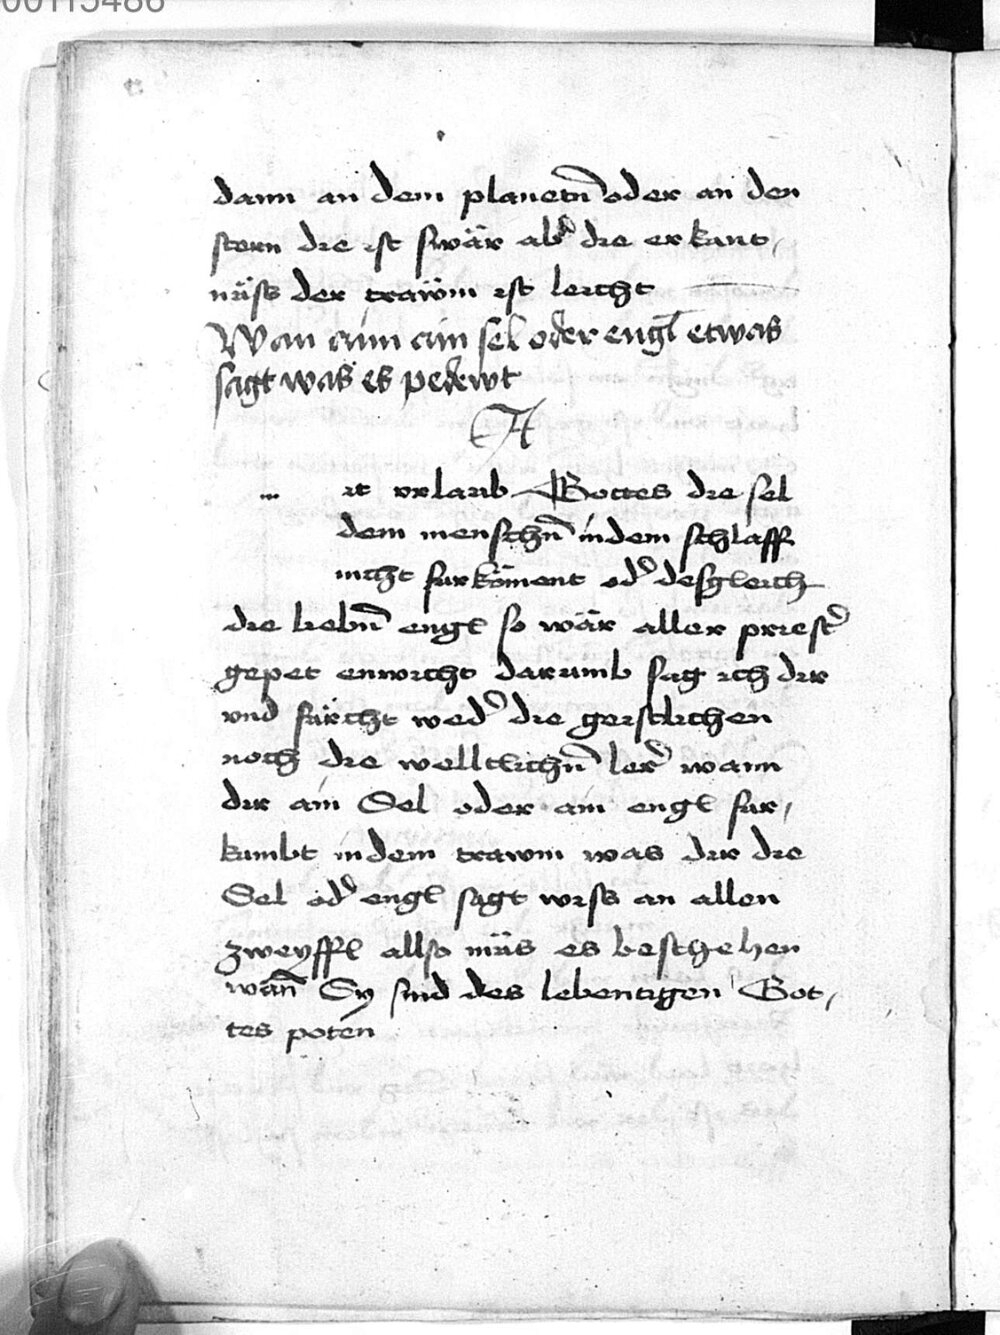 00115486
dann an dem planetn̄ oder an den
stern die ist swär abˀ die erkant,
nüss der traẅm ist leicht
Wan aim ain sel oder engl etwas
sagt was es pedewt
A
m it vrlaub Gottes die sel
dem menschn̄ indem schlaff
nicht furköment odˀ desgleich
die liebn̄ engl so wär aller priestˀ
gepet enwicht darumb sag ich dir
vnd fürcht wedˀ die geistlichen
noch die welltlichn̄ lerˀ wann
dir ain Sel oder ain engl fur,
kumbt indem trawm was dir die
Sel odˀ engl sagt wiss an allen
zweyffl allso müs es beschehen
wan̄ Sy sind des lebentigen Got,
tes poten